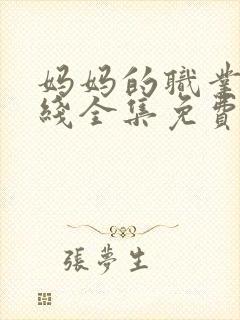 妈妈的職業
綫全集免費
張夢生